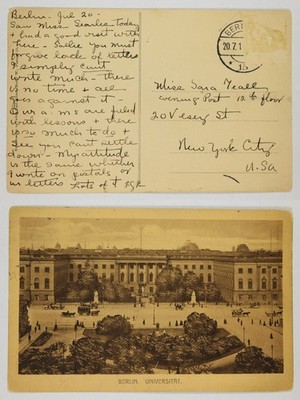 Berlin - Jul 20 -
Saw Miss Searles Today
+ had a good visit with
her - Sallie You must
forgive lack of letters
I simply can't
write much - there
is no time + all
goes against it -
Our a.ms are filled
with lessons + there
is so much to do +
see you can't settle
down - My attitude
is the same whether
I write on postals or
in letters Lots of
BERLIN
20.7.1
Miss Sara Teall
Evening Post 12th floor
20 Vesey St
New York City
U.S.A
BERLIN. UNIVERSITÄT.